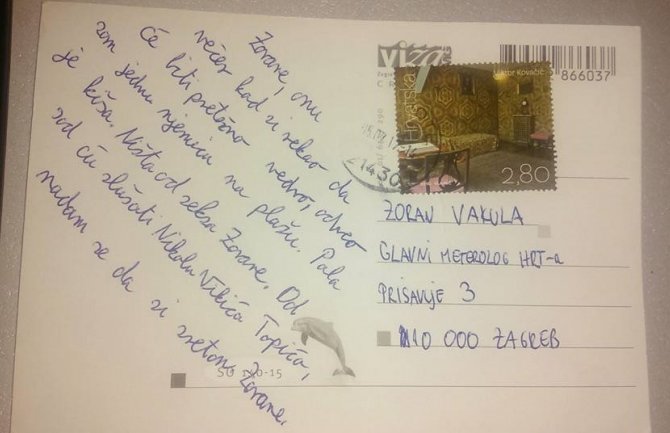 Zorane, onu
večer kad si rekao da
će biti pretežno vedro, odveo
sam jednu njemicu na plažu. Pala
je kiša. Ništa od seksa Zorane. Od
sad ću slušati Nikolu Vikića Topića,
nadam se da si sretan, Zorane.
viza
Zagreb
Hrvatska
Viktor Kovačić
2,80
866037
ZORAN VAKULA
GLAVNI METEROLOG HRT-a
PRISAVLJE 3
10 000 ZAGREB
SU 140-15